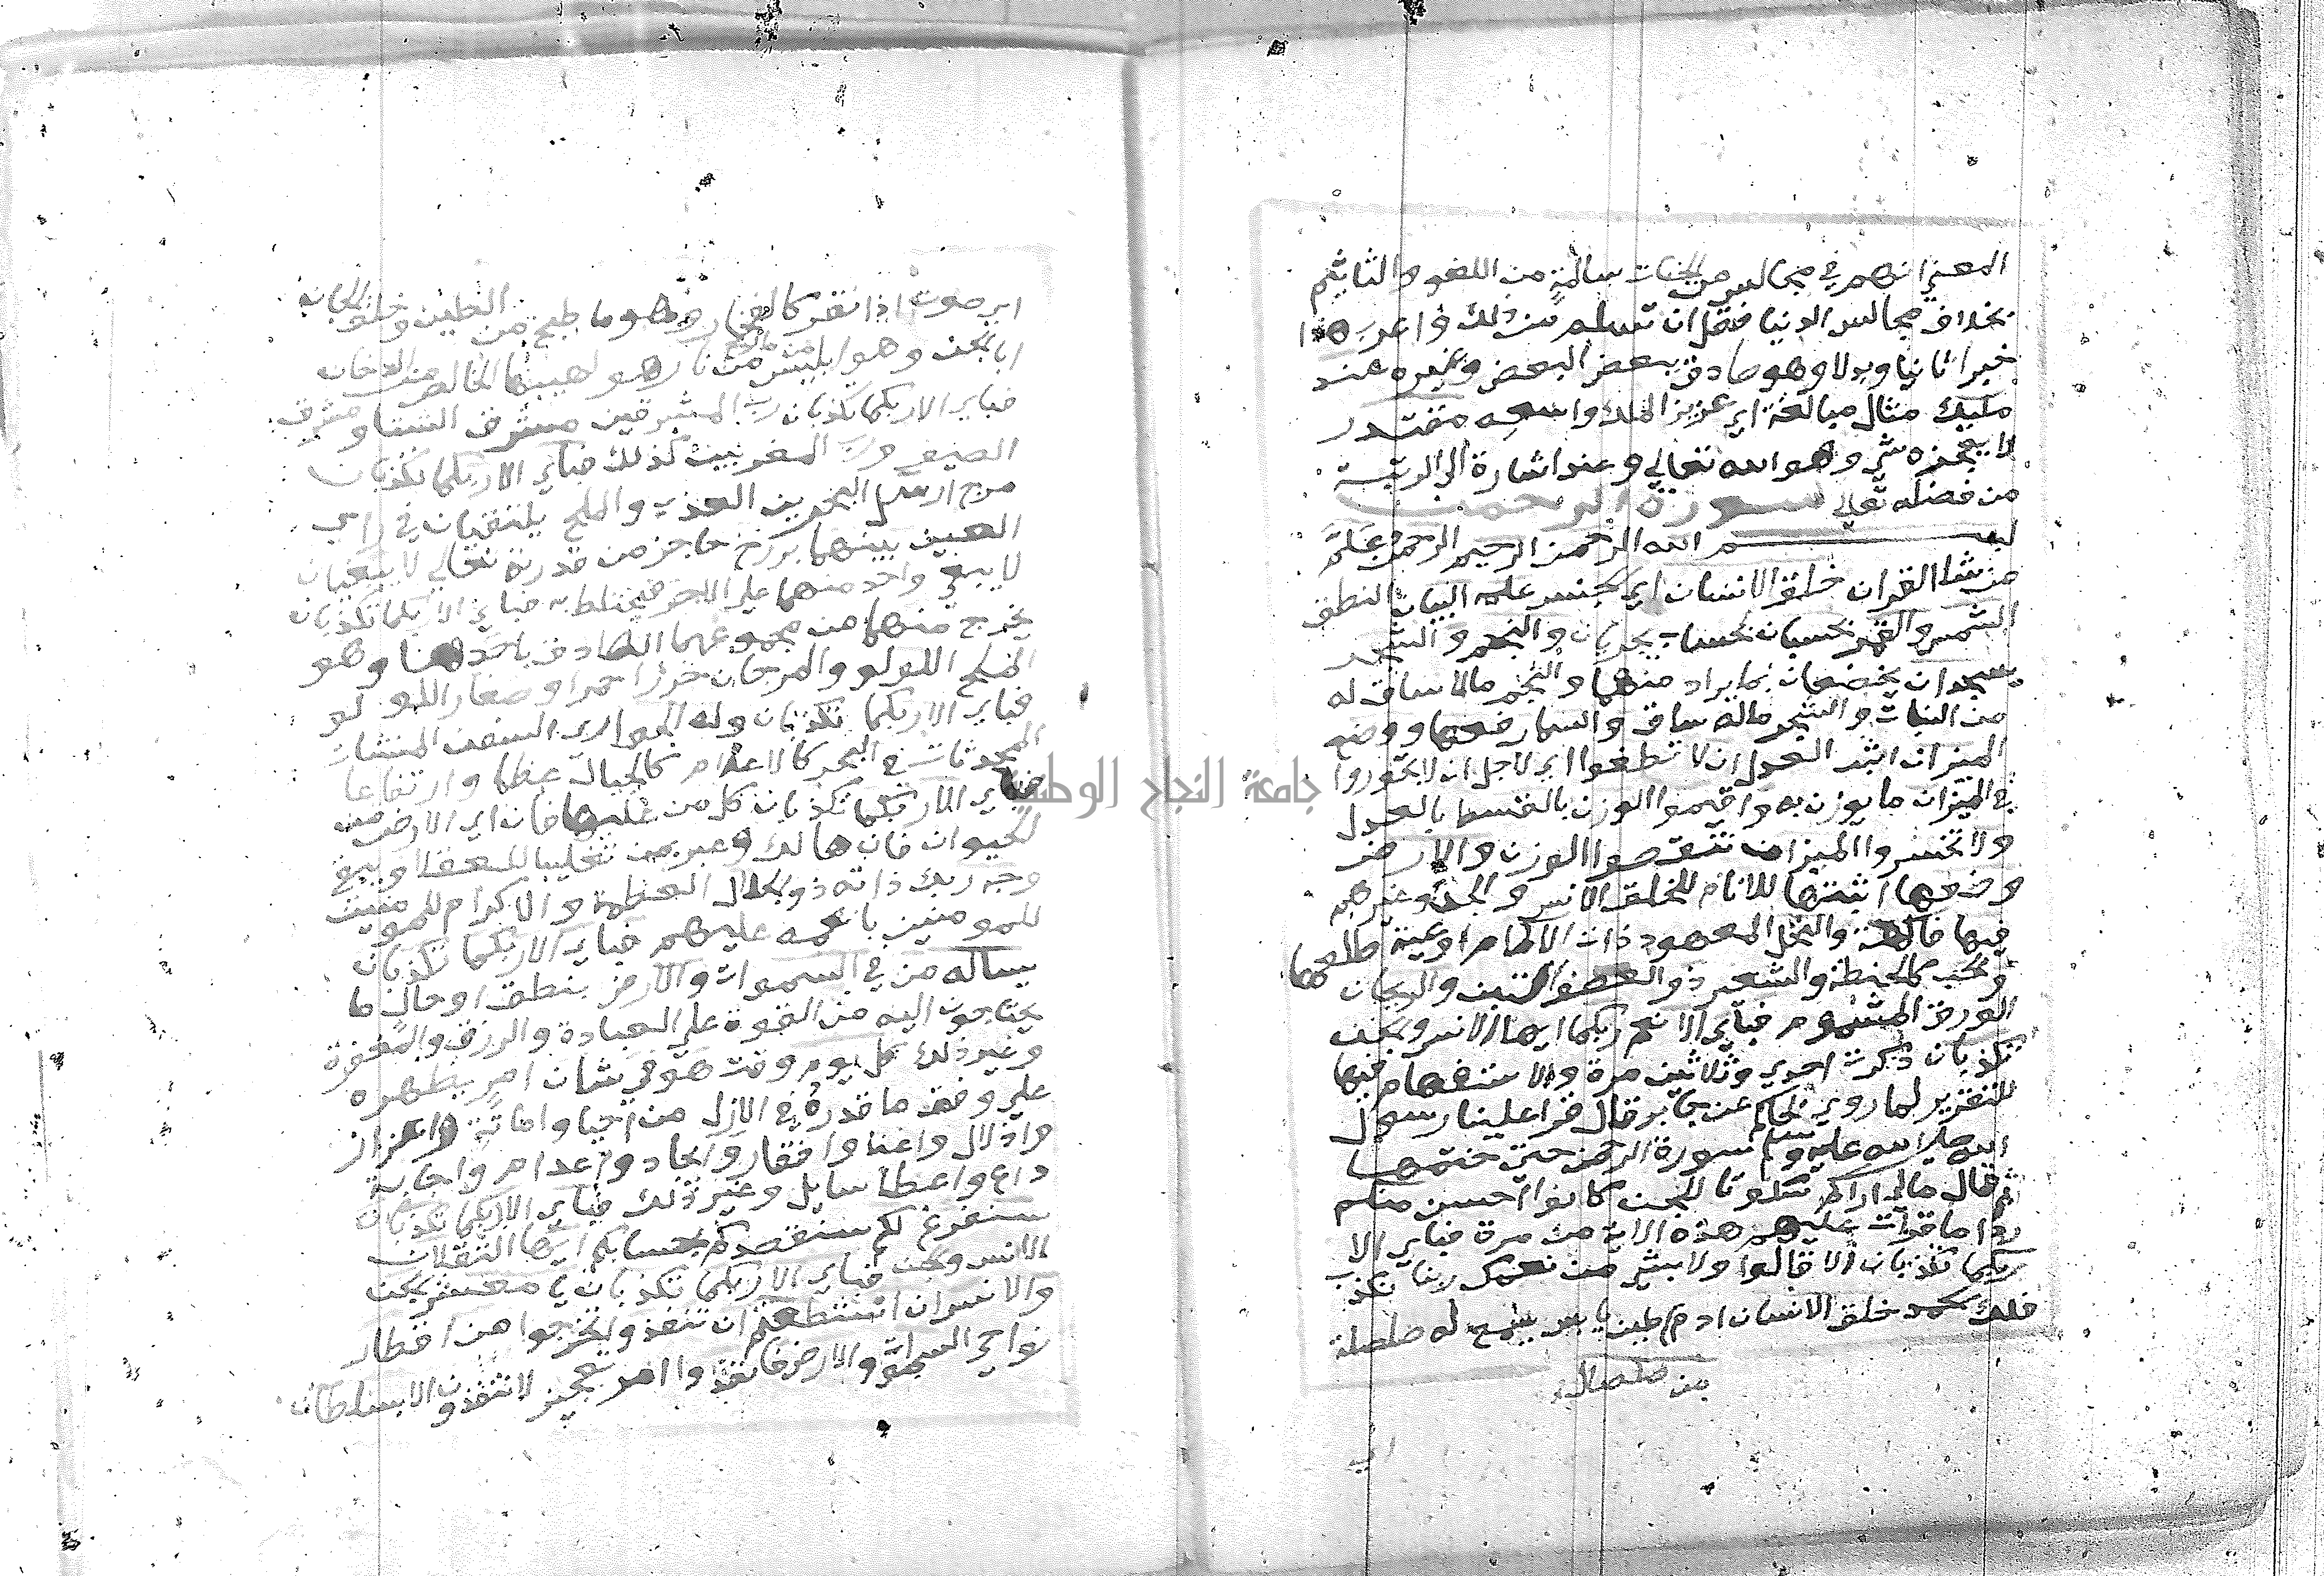 المعني انهم في مجالس من الجنات سالمة من اللغو والتاثيم
بخلاف مجالس الدنيا فقل ان تسلم من ذلك واعرب هذا
خبرا ثانيا وبدلا وهو صادق ببعض البعض وغيره عند
مليك مثال مبالغة اي عزيز الملك واسعه مقتدر
لا يعجزه شي وهو الله تعالي وعند اشارة الي الرتبة
من فضله تعالي سورة الرحمن
بسم الله الرحمن الرحيم الرحمن علم
من شا القران خلق الانسان اي الجنس علمه البيان النطق
الشمس والقمر بحسبان بحساب يجريان والنجم والشجر
يسجدان يخضعان بما يراد منهما والنجم مالا ساق له
من النبات والشجر ماله ساق والسما رفعها ووضع
الميزان اثبت العدل ان لا تطغوا اي لاجل ان لا تجوروا
في الميزان ما يوزن به واقيموا الوزن بالقسط بالعدل
ولا تخسروا الميزان تنقصوا الوزن والارض
وضعها اثبتها للانام للخلق الانس والجن وغيرهم
فيها فاكهة والنخل المعهود ذات الاكمام اوعية طلعها
والحب كالحنطة والشعير ذو العصف التبن والريحان
الورق المشموم فباي الا نعم ربكما ايها الانس والجن
تكذبان ذكرت احدي وثلاثين مرة والاستفهام فيها
للتقرير لما روي الحاكم عن جابر قال قرا علينا رسول
الله صلي الله عليه وسلم سورة الرحمن حتي ختمها
ثم قال مالي اراكم سكوتا للجن كانوا احسن منكم
ردا ما قرات عليهم هذه الاية من مرة فباي الا
ربكما تكذبان الا قالوا ولا بشي من نعمك ربنا نكذب
فلك الحمد خلق الانسان ادم طين يابس يسمع له صلصلة
من صلصال
اي
اي صوت اذا نقر كالفخار وهو ما طبخ من الطين وخلق الجان
ابا الجن وهو ابليس من مارج من نار هو لهيبها الخالص من الدخان
فباي الا ربكما تكذبان رب المشرقين مشرق الشتا ومشرق
الصيف ورب المغربين كذلك فباي الا ربكما تكذبان
مرج ارسل البحرين العذب والملح يلتقيان في راي
العين بينهما برزخ حاجز من قدرته تعالي لا يبغيان
لا يبغي واحد منهما علي الاخر فيختلط به فباي الا ربكما تكذبان
يخرج منهما من مجموعهما الصادق باحدهما وهو
الملح اللولو والمرجان خرز احمر او صغار اللولو
فباي الا ربكما تكذبان وله الجواري السفن المنشات
المحدثات في البحر كالاعلام كالجبال عظما وارتفاعا
فباي الا ربكما تكذبان كل من عليها فان اي الارض من
الحيوان فان هالك وعبر بمن تغليبا للعقلا ويبقي
وجه ربك ذاته ذو الجلال العظمة والاكرام للمومنين
للمومنين بانعمه عليهم فباي الا ربكما تكذبان
يساله من في السموات والارض بنطق او حال ما
يحتاجون اليه من القوة علي العبادة والرزق والمغفرة
وغير ذلك كل يوم وقت هو في شان امر يظهره
علي وفق ما قدره في الازل من احيا واماتة واعزاز
واذلال واغنا وافقار وايجاد واعدام واجابة
داع واعطا سايل وغير ذلك فباي الا ربكما تكذبان
سنفرغ لكم سنقصد لحسابكم ايها الثقلان
الانس والجن فباي الا ربكما تكذبان يا معشر الجن
والانس ان استطعتم ان تنفذوا تخرجوا من اقطار
نواحي السموات والارض فانفذوا امر تعجيز لا تنفذون الا بسلطان
جامعة النجاح الوطنية